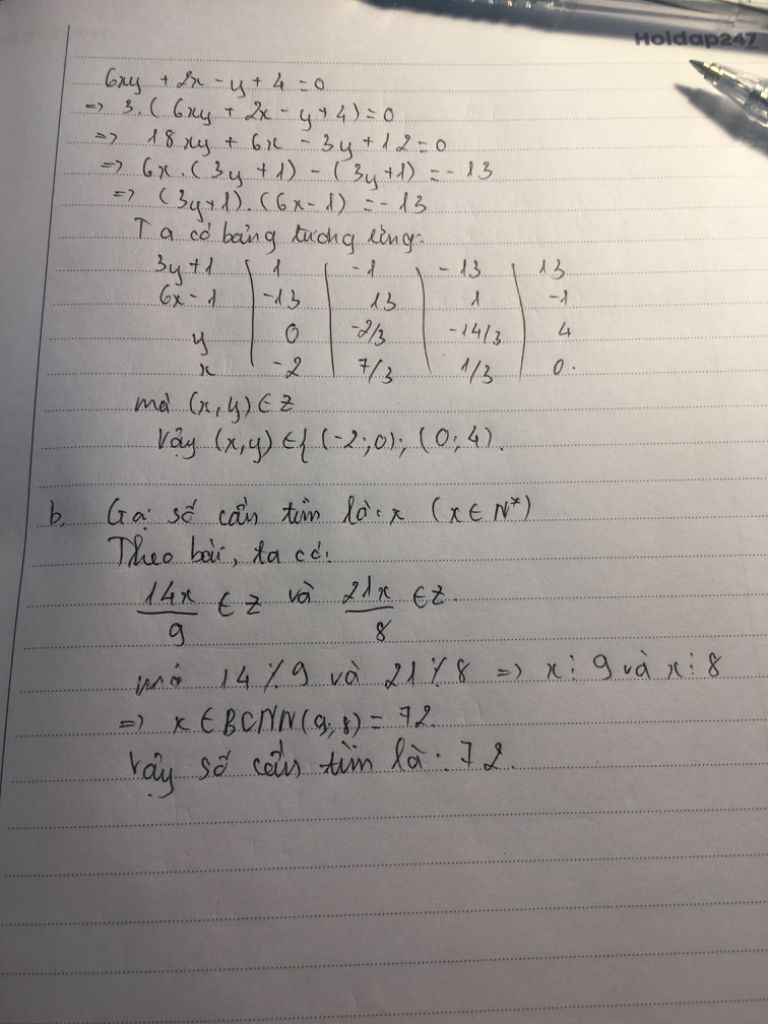 Hoidap247
6xy + 2x - y + 4 = 0
=> 3.(6xy + 2x - y + 4) = 0
=> 18xy + 6x - 3y + 12 = 0
=> 6x.(3y + 1) - (3y + 1) = -13
=> (3y+1).(6x-1) = -13
Ta có bảng tương ứng:
3y+1 | 1 | -1 | -13 | 13
6x-1 | -13 | 13 | 1 | -1
y | 0 | -2/3 | -14/3 | 4
x | -2 | 7/3 | 1/3 | 0.
mà (x,y) ∈ Z
Vậy (x,y) ∈ { (-2;0); (0;4).
b. Gọi số cần tìm là: x (x ∈ N*)
Theo bài, ta có:
14x/9 ∈ Z và 21x/8 ∈ Z.
mà 14 ⋮̸ 9 và 21 ⋮̸ 8 => x ⋮ 9 và x ⋮ 8
=> x ∈ BCNN(9;8) = 72.
Vậy số cần tìm là: 72.